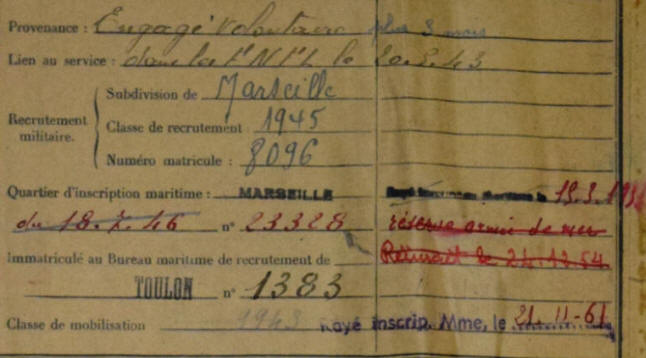 Provenance : Engagé volontaire plus 3 mois
Lien au service : dans la le 20.3.43
Subdivision de Marseille
Recrutement militaire. Classe de recrutement 1945
Numéro matricule : 8096
Quartier d'inscription maritime : MARSEILLE Maritime le 19.3.
du 18.7.46 n° 23328 réserve armée de mer
Immatriculé au Bureau maritime de recrutement de Retiré le 24.12.54
TOULON n° 1383
Classe de mobilisation 1943 Rayé inscrip. Mme, le 21.11-61